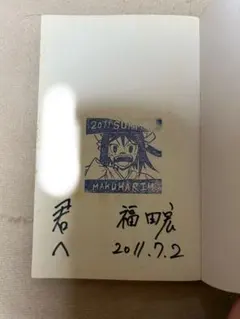 2011 SUMMER
MAKUHARIN
君へ
福田宏
2011.7.2